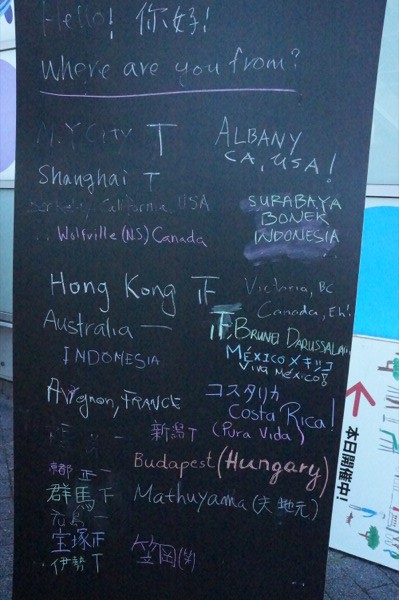 Hello! 你好!
Where are you from?
N.Y CITY T
ALBANY
CA, USA!
Shanghai T
Berkeley, California USA
SURABAYA
BONEK
INDONESIA
Wolfville (N.S) Canada
Hong Kong 下
Victoria, BC
Canada, Eh!
Australia 一
BRUNEI DARUSSALAM
INDONESIA
MÉXICO メキシコ
VIVA MÉXICO
Avignon, FRANCE
コスタリカ
Costa Rica!
(Pura Vida)
新潟 T
京都 正一
Budapest (Hungary)
群馬 下
Mathuyama (大地元)
広島 一
宝塚 正
笠岡 (笑)
伊勢 T
本日開催中!